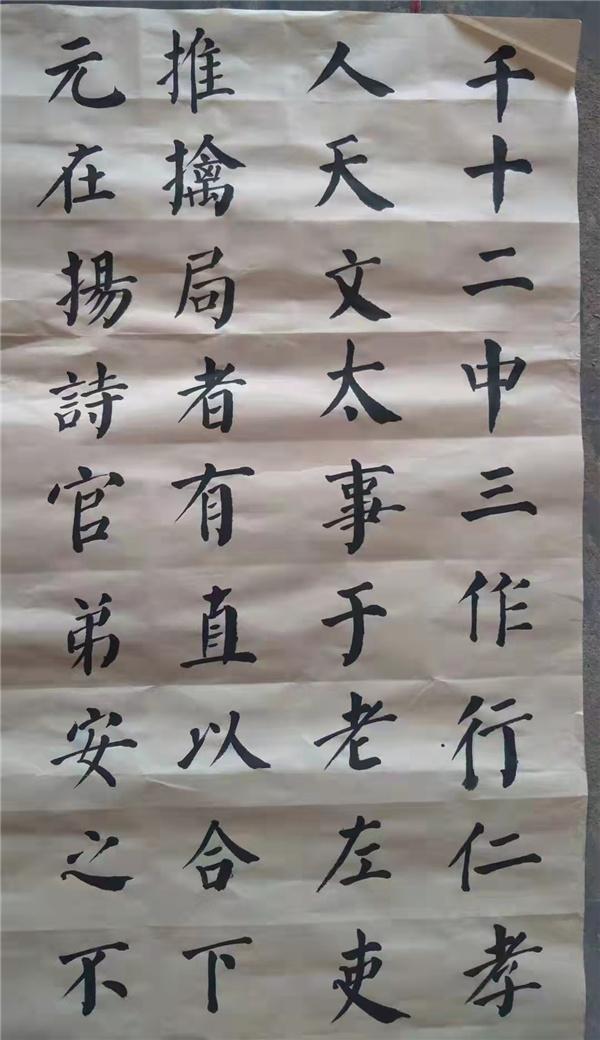 千十二中三作行仁孝
人天文太事于老左吏
推擒局者有直以合下
元在揚詩官弟安之不